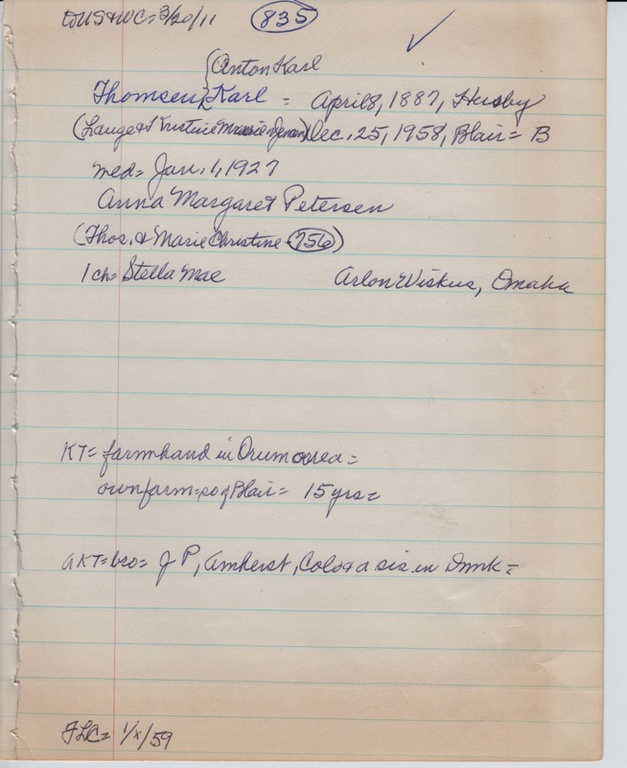 DUS&WC = 3/20/11 835 ✓
{Anton Karl
Thomsen, Karl = April 8, 1887, Husby
(Lauge & Kristine Marie Jensen) Dec. 25, 1958, Blair = B
med = Jan. 1, 1927
Anna Margaret Petersen
(Thos. & Marie Christine - 756)
1 ch = Stella Mae Arlon Wiskus, Omaha
KT = farmhand in Orum area =
own farm = so of Blair = 15 yrs =
AKT = bro = J P, Amherst, Colo & a sis in Dnmk =
FLC = 1/x/59